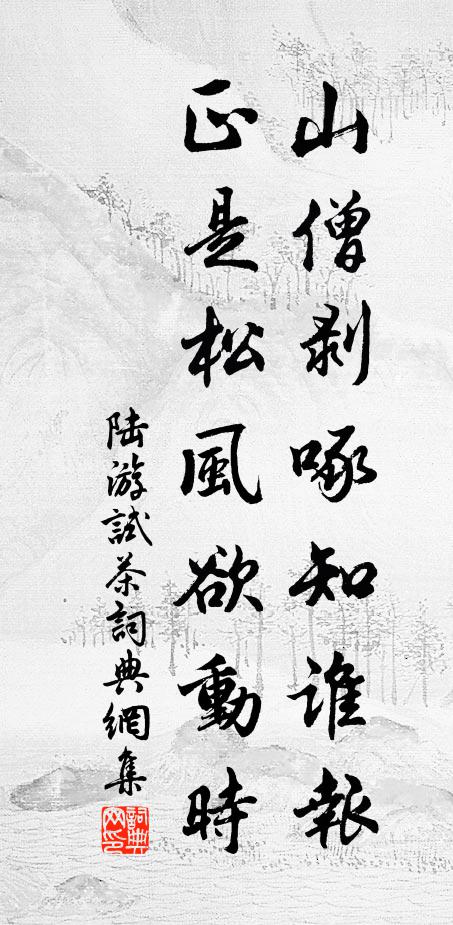 山僧剥啄知誰報
正是松風欲動時
陆游試茶詞典網集
詞典